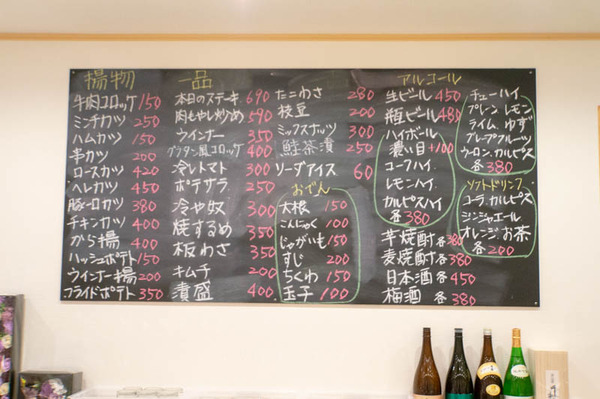 揚物
牛肉コロッケ 150
ミンチカツ 250
ハムカツ 150
串カツ 200
ロースカツ 420
ヘレカツ 450
豚一口カツ 380
チキンカツ 400
から揚 400
ハッシュポテト 150
ウインナー揚 200
フライドポテト 350
一品
本日のステーキ 690
肉もやし炒め 590
ウインナー 350
グラタン風コロッケ 400
冷トマト 300
ポテサラ 250
冷や奴 300
焼するめ 350
板わさ 350
キムチ 200
漬盛 250
たこわさ 280
枝豆 200
ミックスナッツ 300
鮭茶漬 250
ソーダアイス 60
おでん
大根 150
こんにゃく 100
じゃがいも 150
すじ 200
ちくわ 150
玉子 100
アルコール
生ビール 450
瓶ビール 480
ハイボール
濃い目 +100
コークハイ
レモンハイ
カルピスハイ
各 380
芋焼酎 各380
麦焼酎 各380
日本酒 各450
梅酒 各380
チューハイ
プレーン レモン
ライム、ゆず
グレープフルーツ
ウーロン、カルピス
各 380
ソフトドリンク
コーラ、カルピス
ジンジャエール
オレンジ、お茶
各 200